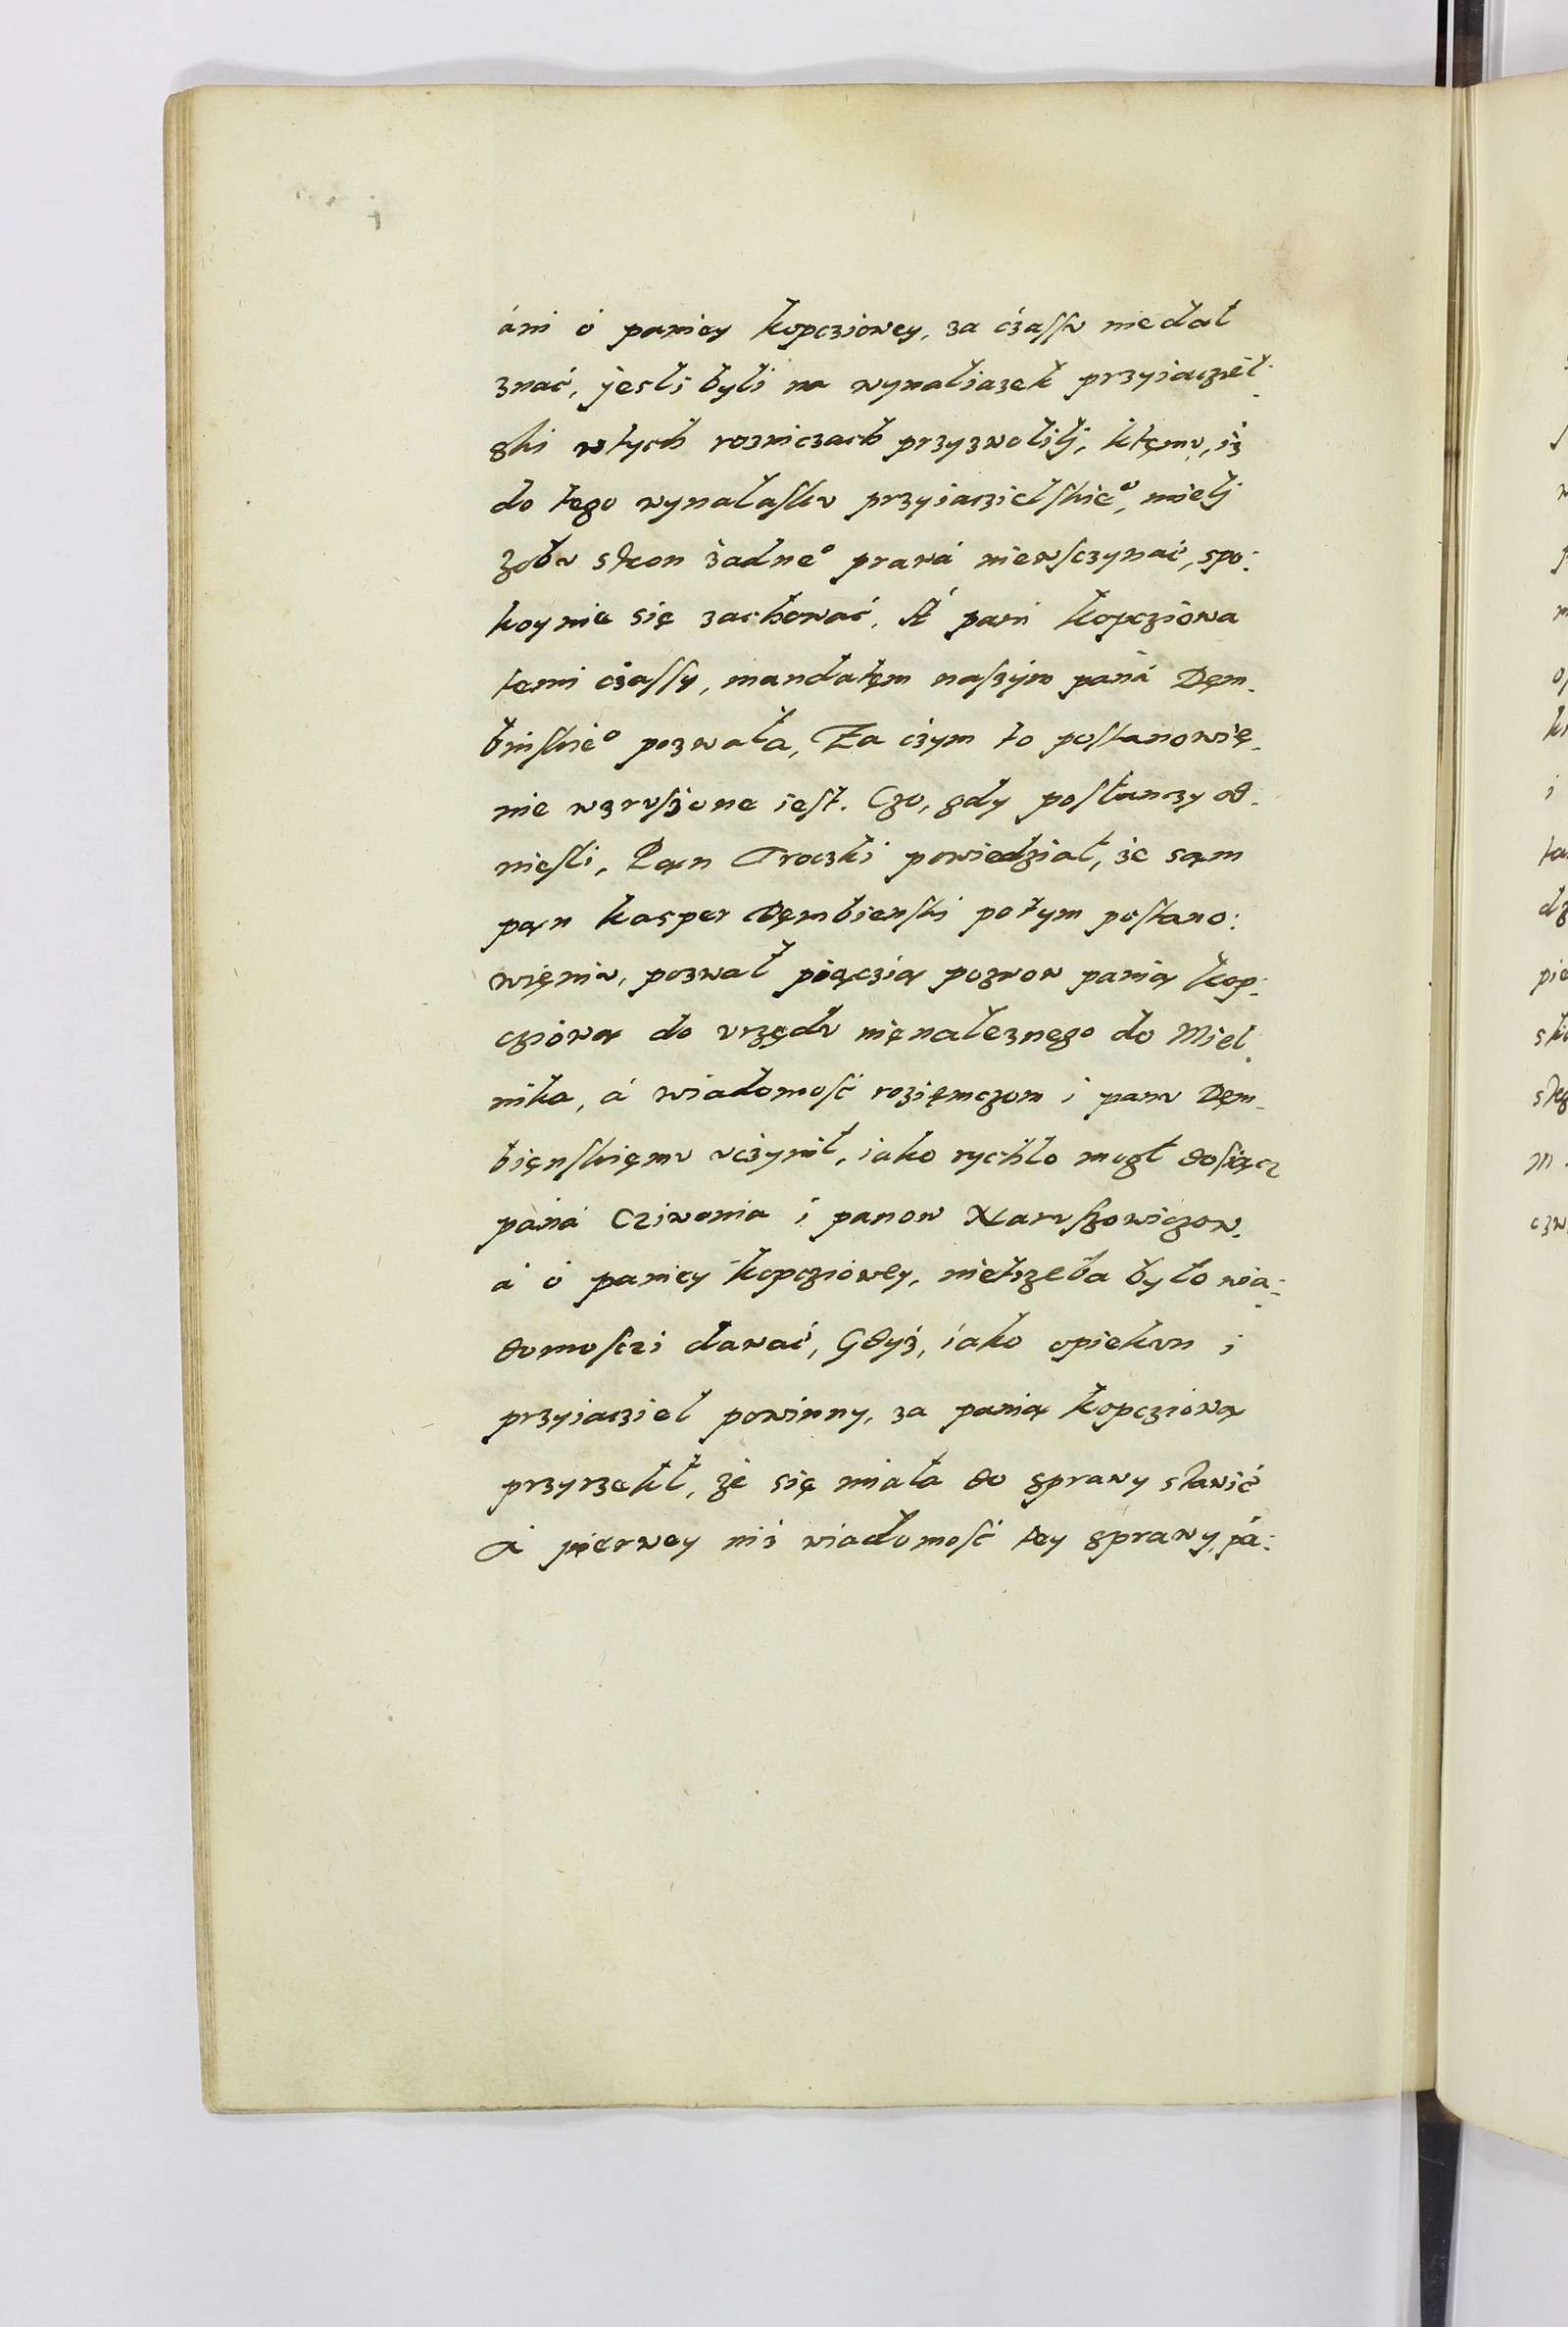 áni ó paniey kopcziowey, za czassu nie dał
znać, jesli byli na wynaliazek przyiaczièl.
ski wtych rozniczach przyzwolilj, ktęmu, iż
do tego wynalasku przyiaczielskie°, mielj
zobu stron żadne° prawá niewsczynać, spo:
koynie się zachować. A pani kopcziowa
temi czassy, mandatęm naszym paná Dęm.
binskie° pozwała, Za czym to postanowię.
nie wzruszone iest. Czo, gdy posłanczy od.
niesli, Pąn Troczki powiedział, że sąm
pąn kasper Dęmbienski potym postano:
więniu, pozwał pięczią pozwow panią kop:
cziową do vrzędu nięnależnego do Miel.
nika, á wiadomość rozięmczom i panu Dęm.
bięnskięmu uczynił, iako rychło mogł dosiącz
paná Cziwonia i panow Naruszowiczow.
á ó paniey kopcziowey, nietrzeba było wia:
domosczi dawać, Gdyż, iako opiekun i
przyiacziel powinny, za panią kopcziową
przyrzekł, że się miała do sprawy stawić
A pierwey niż wiadomość tey sprawy, pá: